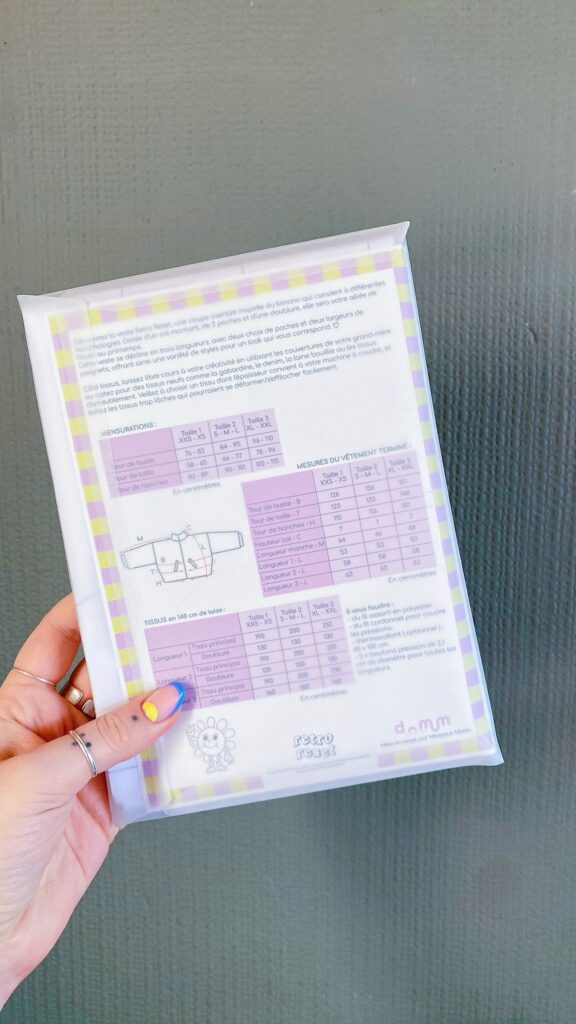 Découvrez la veste Retro Reset, une coupe oversize inspirée du kimono qui convient à différentes
morphologies. Dotée d'un col montant, de 2 poches et d'une doublure, elle sera votre alliée de
l'hiver au printemps.
Cette veste se décline en trois longueurs, avec deux choix de poches et deux largeurs de
poignets, offrant ainsi une variété de styles pour un look qui vous correspond. ♡
Côté tissus, laissez libre cours à votre créativité en utilisant les couvertures de votre grand-mère
ou optez pour des tissus neufs comme la gabardine, le denim, la laine bouillie ou les tissus
d'ameublement. Veillez à choisir un tissu dont l'épaisseur convient à votre machine à coudre, et
évitez les tissus trop lâches qui pourraient se déformer/s'effilocher facilement.
MENSURATIONS :
Taille 1 Taille 2 Taille 3
XXS - XS S - M - L XL - XXL
Tour de buste 76 - 83 84 - 95 96 - 110
Tour de taille 58 - 65 66 - 77 78 - 96
Tour de hanches 83 - 89 90 - 101 102 - 115
En centimètres
MESURES DU VÊTEMENT TERMINÉ :
Taille 1 Taille 2 Taille 3
XXS - XS S - M - L XL - XXL
Tour de buste - B 126 136
Tour de taille - T 123 133 148
Tour de hanches - H 110 116 131
Hauteur col - C 7 7 7
Longueur manche - M 64 66 68
Longueur 1 - L 53 53 53
Longueur 2 - L 58 58 58
Longueur 3 - L 63 63 63
En centimètres
M C B L T H
TISSUS en 140 cm de laize :
Taille 1 Taille 2 Taille 3
XXS - XS S - M - L XL - XXL
Longueur 1 Tissu principal 190 200 210
Doublure 130 130 130
Longueur 2 Tissu principal 190 200 210
Doublure 130 130 130
Tissu principal 190 200 210
Doublure 160 160 160
En centimètres
Il vous faudra :
- du fil assorti en polyester.
- du fil cordonnet pour coudre
les pressions.
- thermocollant ( optionnel ) :
60 x 100 cm.
boutons pression de 2,1
cm de diamètre pour toutes les
longueurs.
retro
reset
Mise en page par